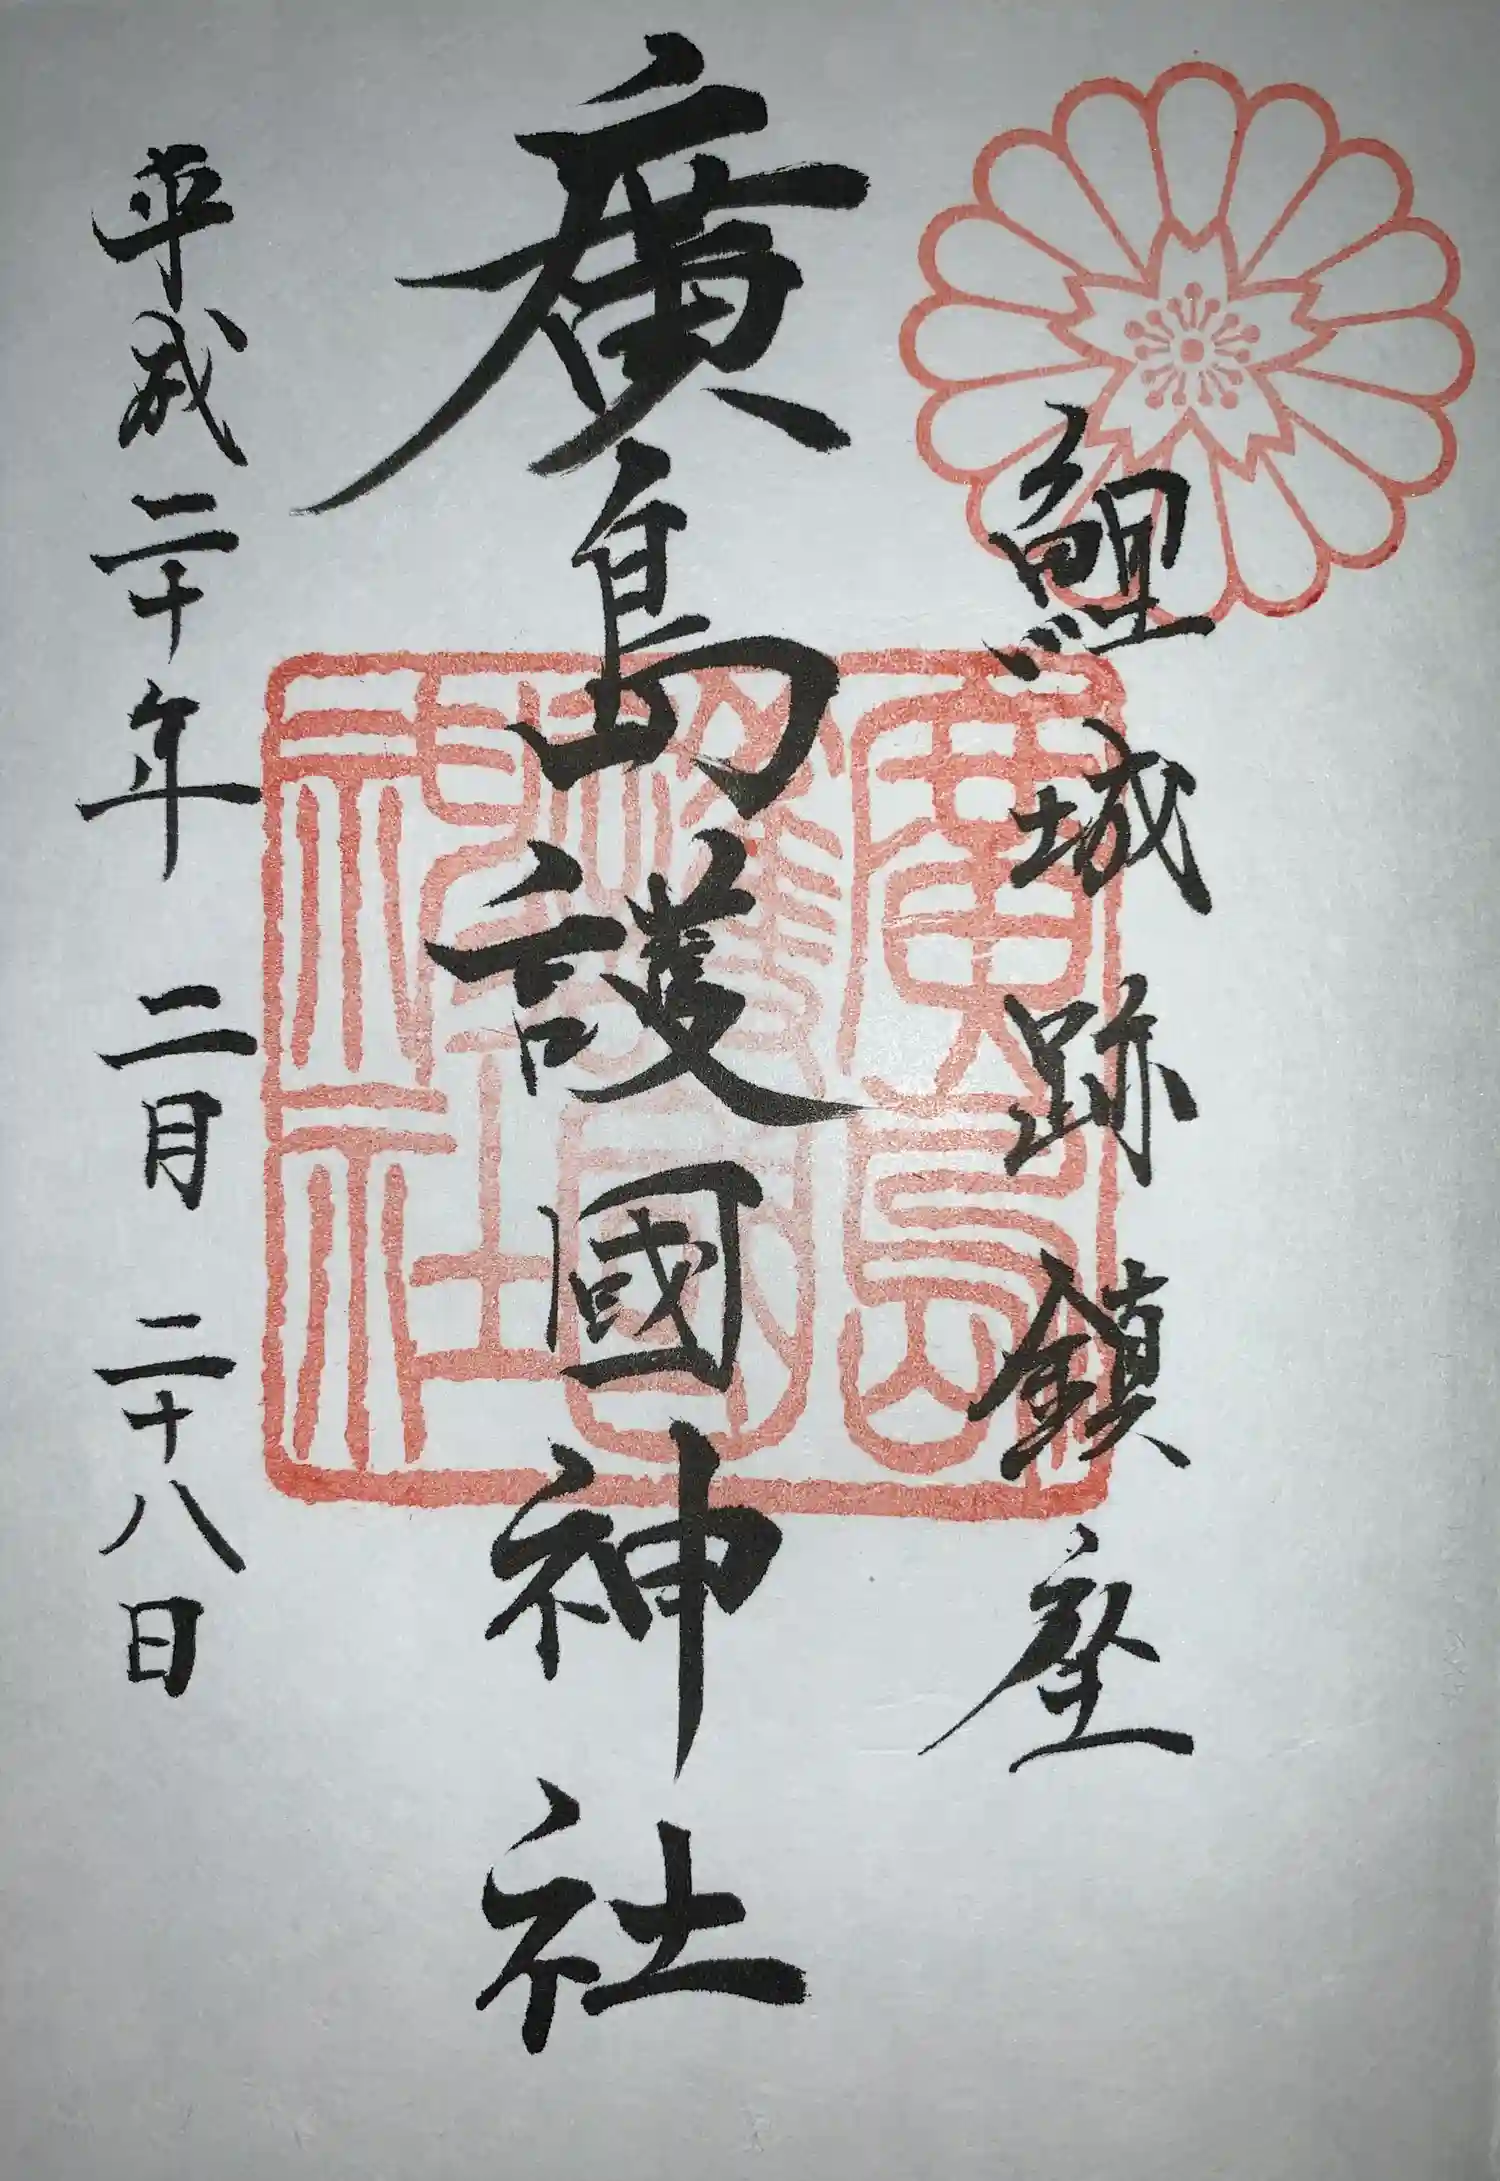 鯉城跡鎮座
廣島護國神社
平成二十年二月二十八日
廣島護國神社